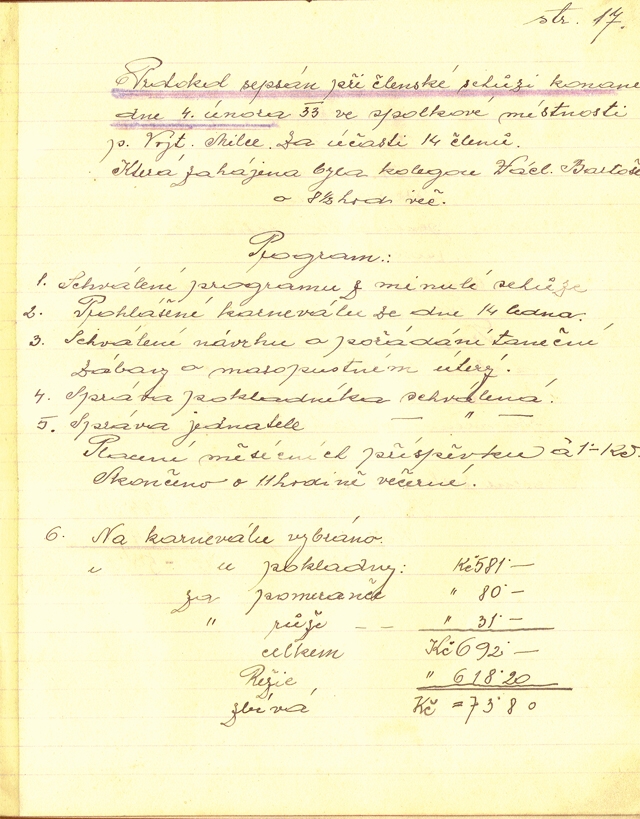 str. 17.
Protokol sepsán při členské schůzi konané
dne 4. února 33 ve spolkové místnosti
p. Vojt. Milce. Za účasti 14 členů.
Která zahájena byla kolegou Václ. Bartoše
o 8½ hod več.
Program.:
1. Schválení programu z minulé schůze
2. Prohlášené karneválu ze dne 14 ledna.
3. Schválené návrhu o pořádání taneční
zábavy o masopustném úterý.
4. Správa pokladníka schválená.
5. Správa jednatele — " —
Placení měsíčních příspěvku à 1·– Kč.
Skončeno o 11 hodině večerné.
6. Na karneválu vybráno.
" u pokladny: Kč 581·—
za pomeranče " 80·—
" růže — — " 31·—
celkem Kč 692·—
Režie " 618·20
zbívá Kč = 73·80